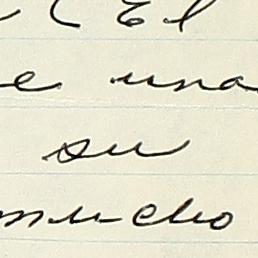 El
una
su
mucho